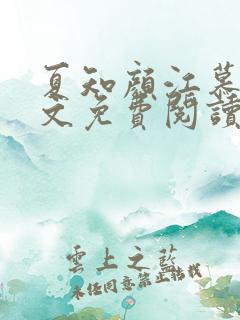 夏知顏江慕
文免費閱讀
雲上之藍
未經同意禁止搭載